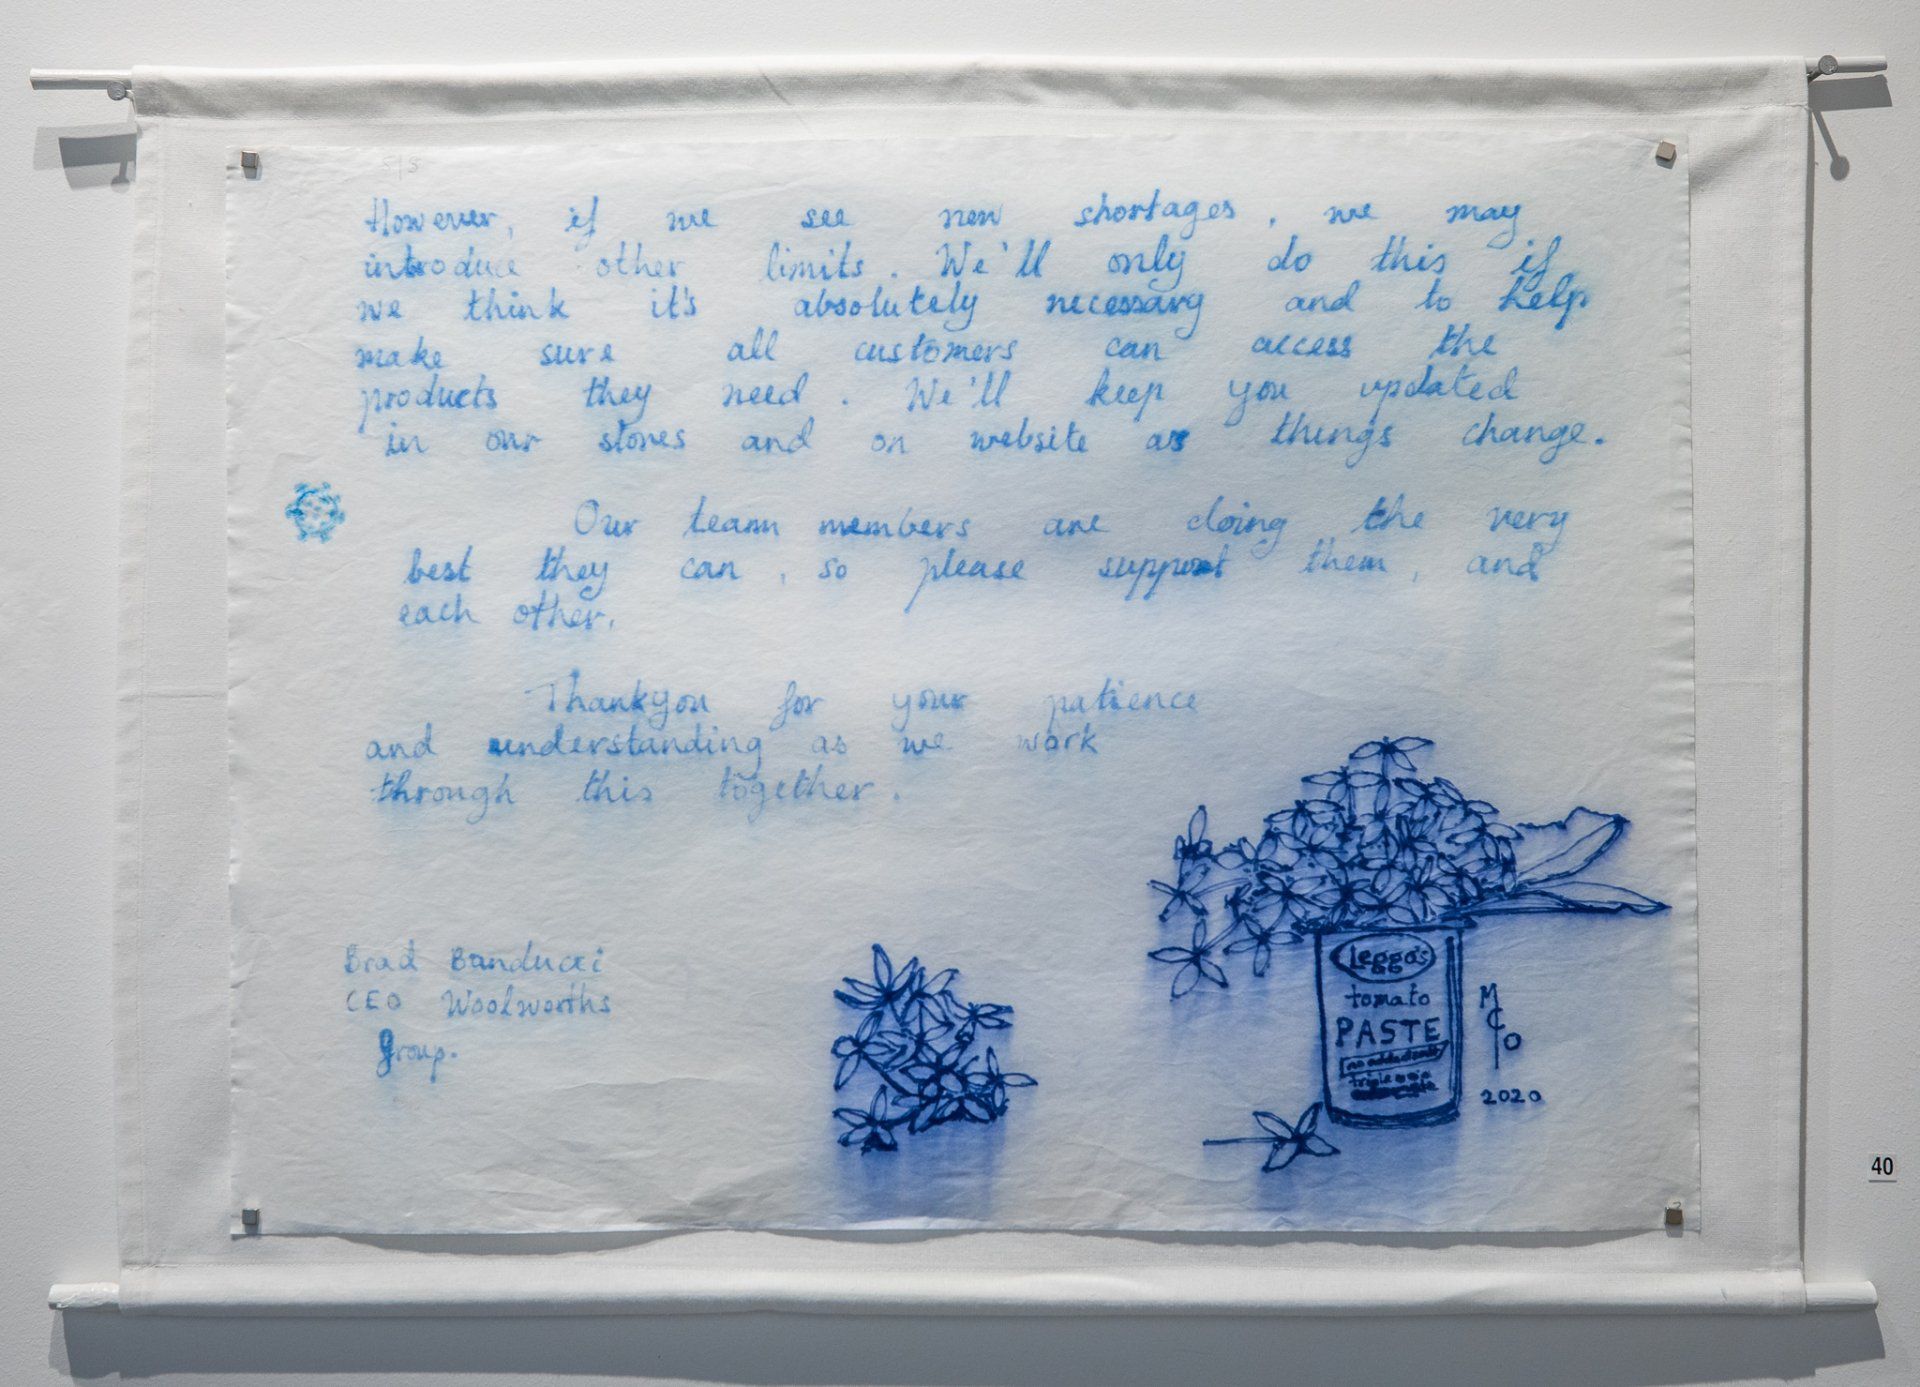 5/5
However, if we see new shortages, we may
introduce other limits. We'll only do this if
we think it's absolutely necessary and to help
make sure all customers can access the
products they need. We'll keep you updated
in our stores and on website as things change.
Our team members are doing the very
best they can, so please support them, and
each other.
Thankyou for your patience
and understanding as we work
through this together.
Brad Banducci
CEO Woolworths
Group.
Leggo's
tomato
PASTE
no added salt
triple
2020
40